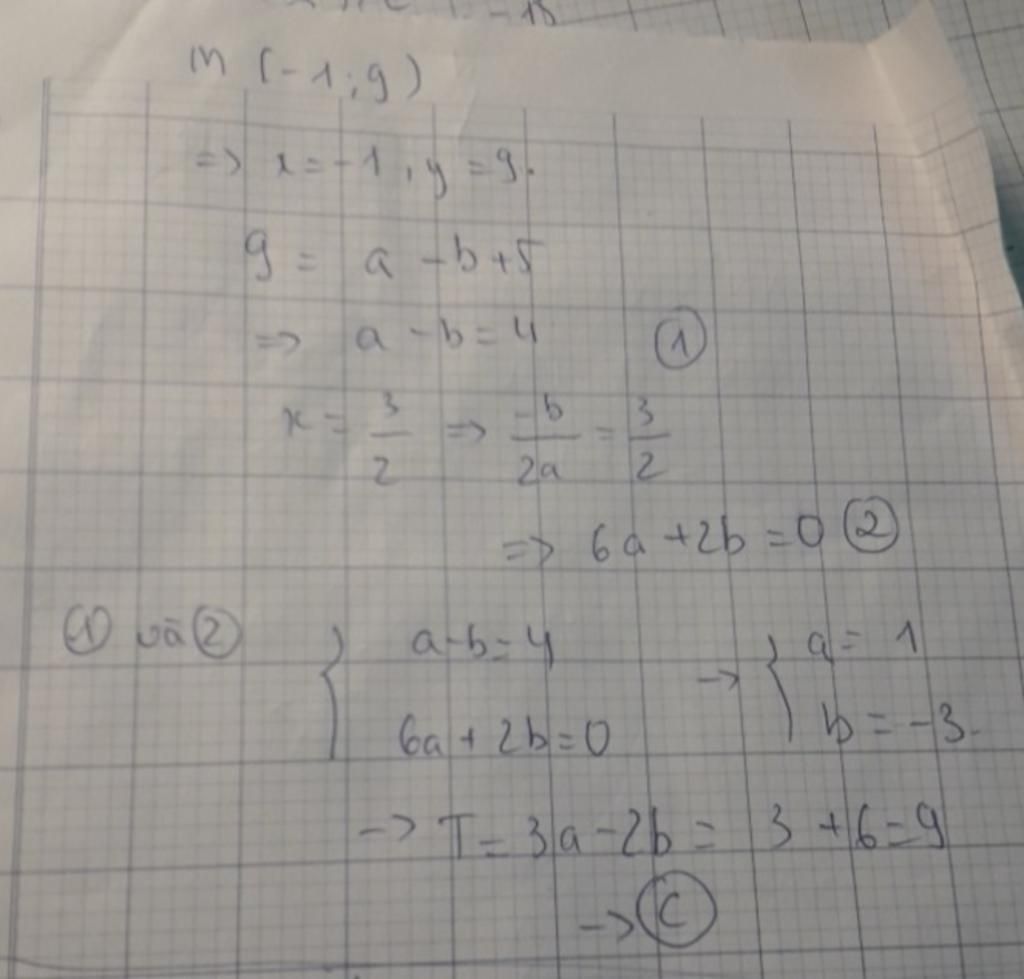 M (-1; 9)
=> x = -1, y = 9.
9 = a - b + 5
=> a - b = 4 ①
x = 3/2 => -b/2a = 3/2
=> 6a + 2b = 0 ②
① và ② { a - b = 4 -> { a = 1
6a + 2b = 0 b = -3.
-> T = 3a - 2b = 3 + 6 = 9
-> Ⓒ